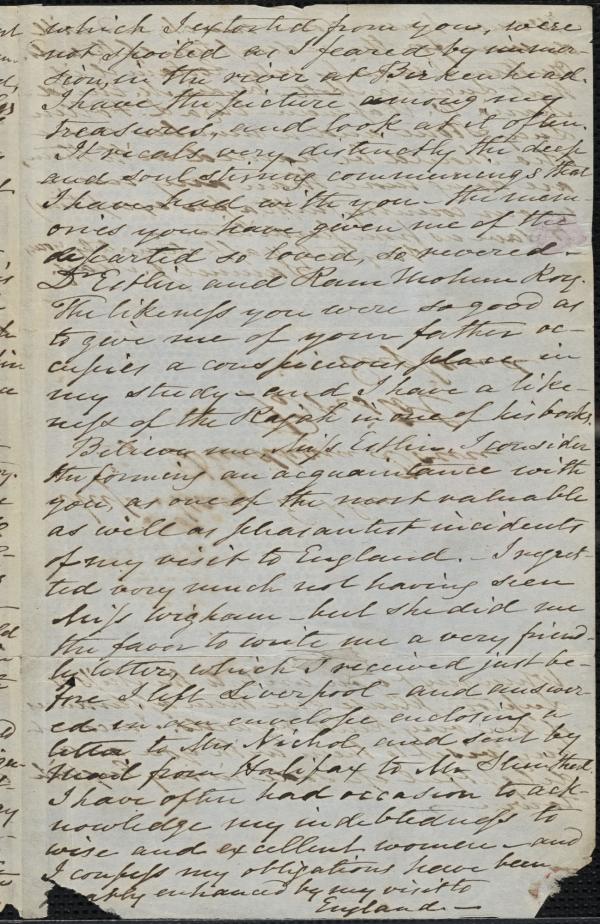 which I extorted from you, were
not spoiled as I feared by immer-
sion, in the river at Birkenhead.
I have the picture among my
treasures, and look at it often.
It recals very distinctly the deep
and soul stirring communings that
I have had with you - the mem-
ories you have given me of the
departed so loved, so revered -
Dr Estlin and Ram Mohun Roy.
The likeness you were so good as
to give me of your father oc-
cupies a conspicuous place in
my study - and I have a like-
ness of the Rajah in one of his books.
Believe me, Miss Estlin, I consider
the forming an acquaintance with
you, as one of the most valuable
as well as pleasantest incidents
of my visit to England. - I regret-
ted very much not having seen
Miss Wigham - but she did me
the favor to write me a very friend-
ly letter, which I received just be-
fore I left Liverpool - and answer-
ed in an envelope enclosing a
letter to Mrs Nichol, and sent by
mail from Halifax to Mr
I have often had occasion to ack-
nowledge my indebtedness to
wise and excellent women - and
I confess my obligations have been
enhanced by my visit to
England -